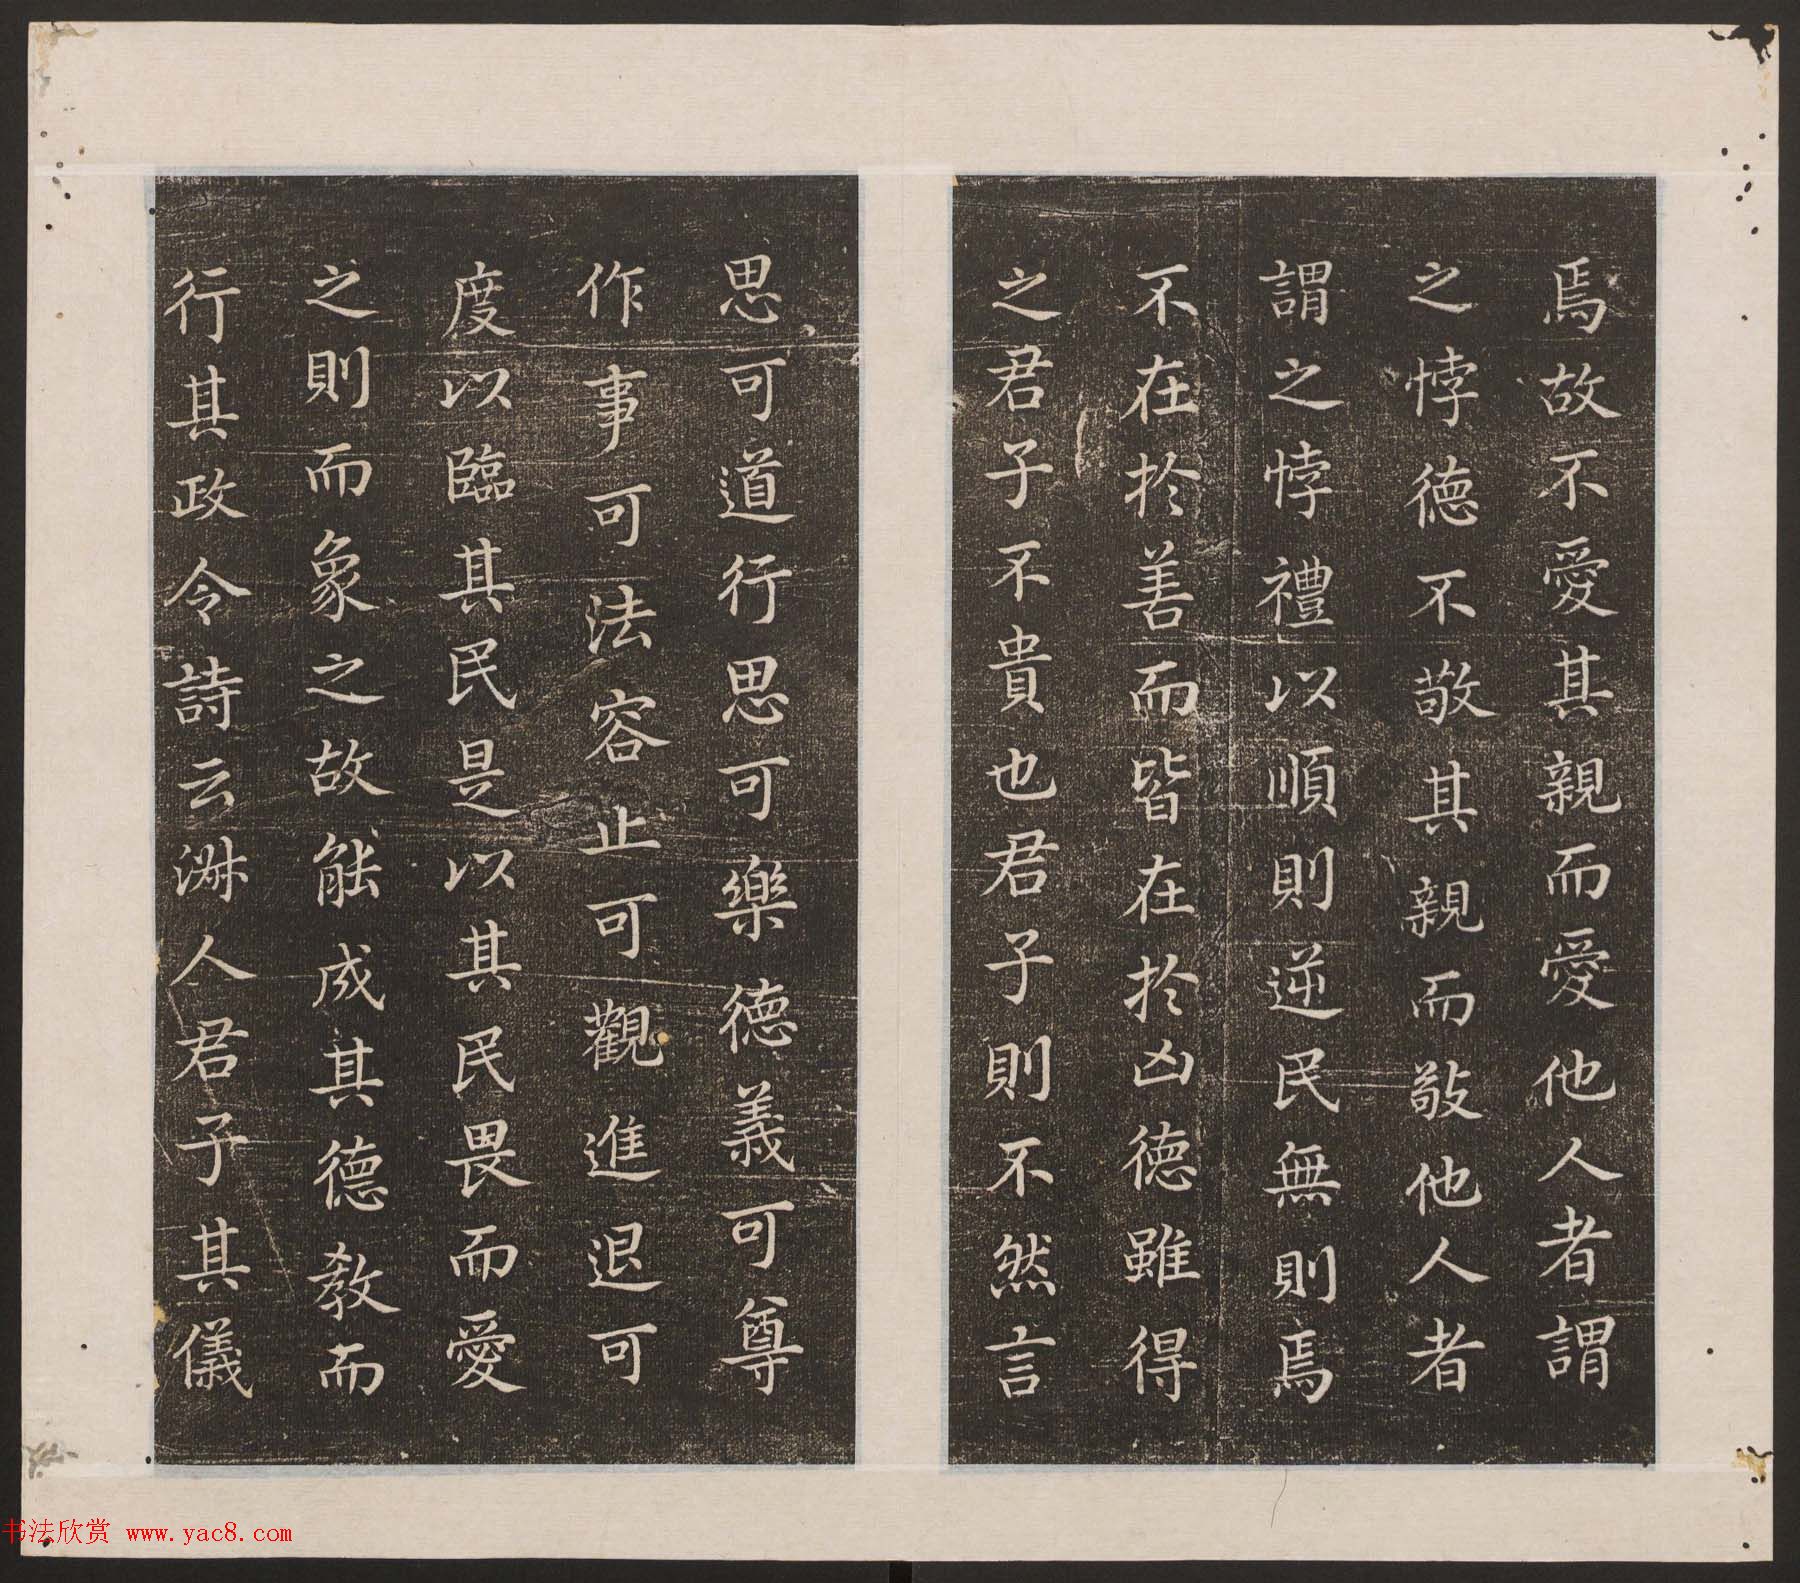 焉故不愛其親而愛他人者謂
之悖德不敬其親而敬他人者
謂之悖禮以順則逆民無則焉
不在於善而皆在於凶德雖得
之君子不貴也君子則不然言
思可道行思可樂德義可尊
作事可法容止可觀進退可
度以臨其民是以其民畏而愛
之則而象之故能成其德教而
行其政令詩云淑人君子其儀
书法欣赏 www.yac8.com